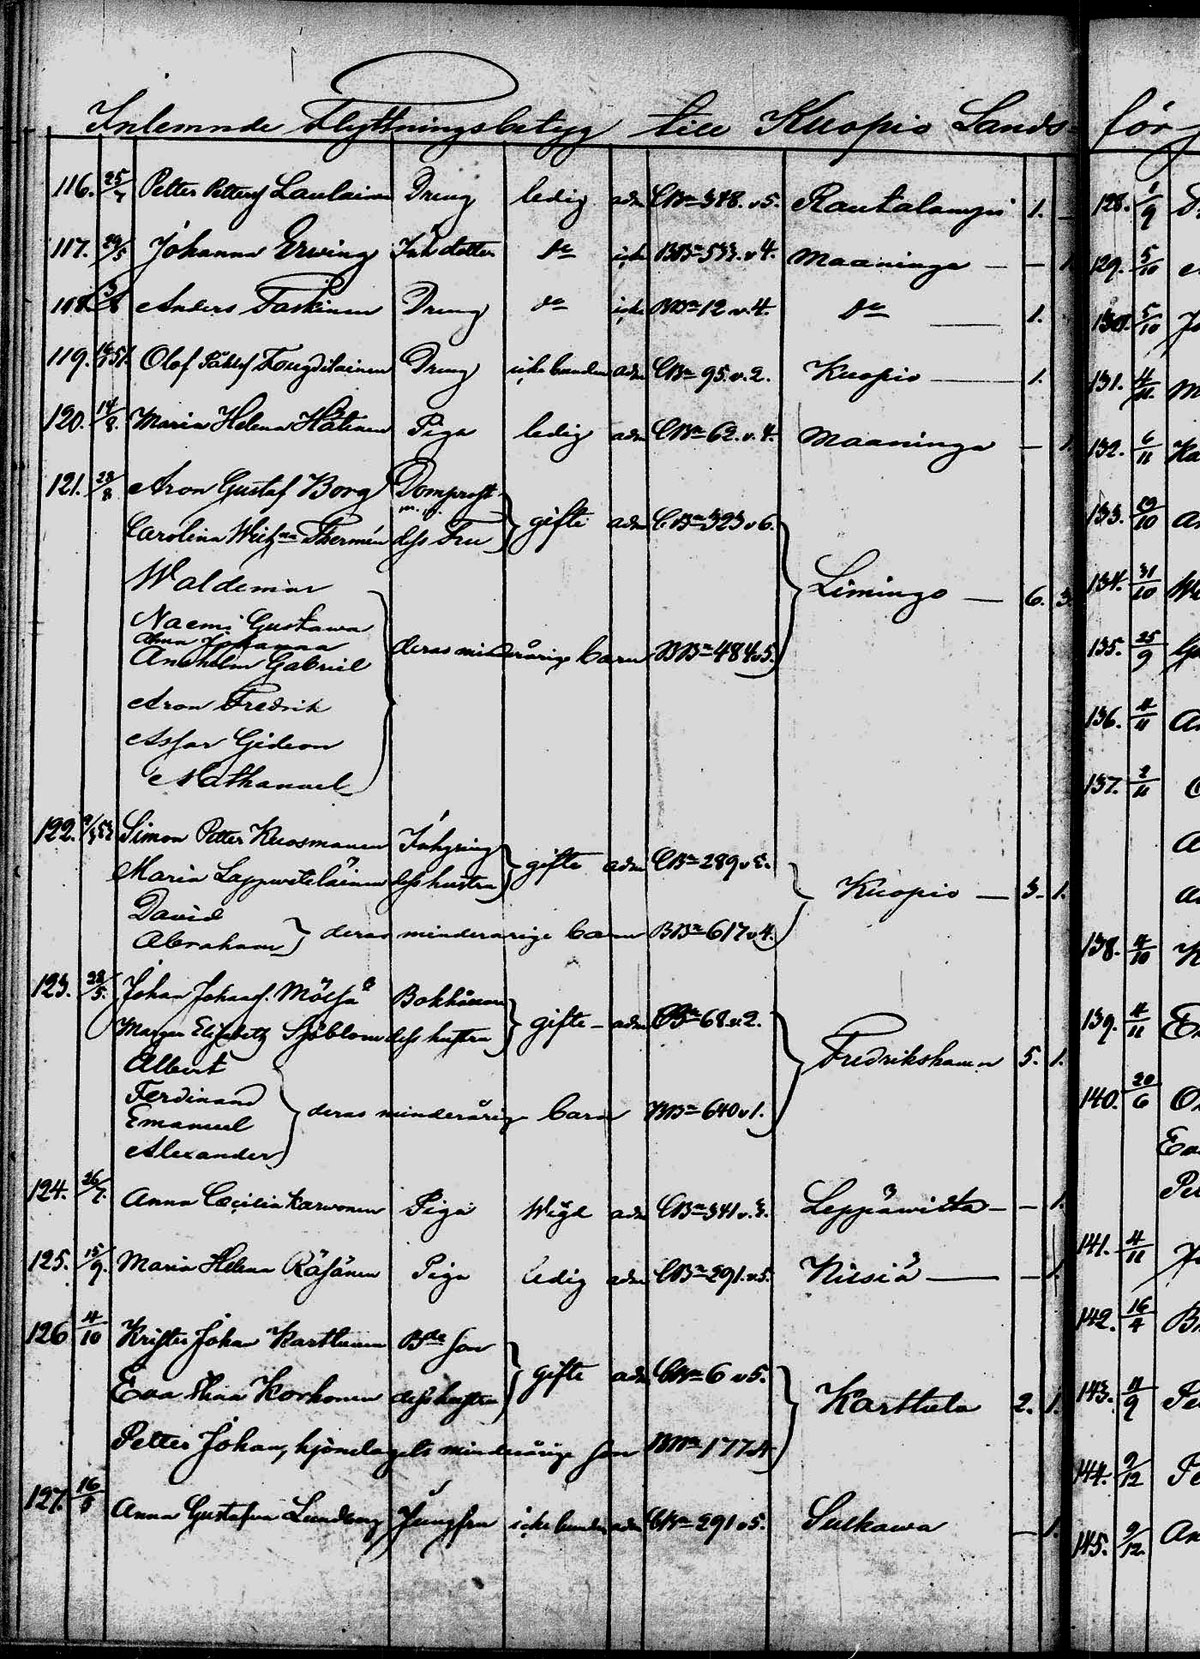 Inlemnde Flyttningsbetyg till Kuopio Lands- för
116. 25/7 Petter Petterss Laulainen Dreng ledig adm CB 378. v 5. Rautalampi 1. –
117. 29/5 Johanna Erwing Inh dotter do icke BB 533. v 4. Maaninga – – 1.
118. Anders Taskinen Dreng do icke BB 12 v. 4. do – 1.
119. Olof Påhlss Fougdilainen Dreng icke bunden adm CB 95. v. 2. Kuopio – 1.
120. 14/8. Maria Helena Hätinen Piga ledig adm CB 62. v. 4. Maaninga – 1.
121. 28/8 Aron Gustaf Borg Domprost
Carolina Wilhna Thermén dess Fru gifte adm CB 323 v 6.
Waldemar Limingo – 6. 3.
Naemi Gustawa
Alma Johanna
Anshelm Gabriel deras minderårige barn BB 484 v 5.
Aron Fredrik
Assar Gideon
Nathanael
122. Simon Petter Kuosmanen Inhysing
Maria Lappveteläinen dess hustru gifte adm CB 289 v 5. Kuopio – 3. 1.
David
Abraham deras minderårige barn BB 617 v 4.
123. 28/5. Johan Johanss. Mölsä Bokhållare
Margar Elisabeth Sjöblom dess hustru gifte – adm CB 68 v. 2.
Albert Fredrikshamn 5. 1.
Ferdinand
Emanuel deras minderårige barn BB 640 v 1.
Alexander
124. 26/7. Anna Cæcilia Karvonen Piga Wigd adm CB 341 v. 3. Leppäwirta – – 1.
125. 15/9. Maria Helena Räsänen Piga ledig adm CB 291. v. 5. Nilsiä – – 1.
126 4/10 Krister Johan Karttunen Bde son
Eva Stina Korhonen dess hustru gifte adm CB 6 v 5. Karttula 2. 1.
Petter Johan, hjonelagets minderårige son BB 177 v 4.
127. 16/5 Anna Gustafva Lundberg Jungfru icke bunden adm CB 291 v 5. Sulkawa – 1.
128. 1/9
129. 5/10
130. 5/10
131. 4/11.
132. 6/11
133. 19/10
134. 31/10
135. 25/9
136. 4/11
137. 2/11
138. 4/10
139. 4/11
140. 20/6
141. 4/11
142. 16/4
143. 11/9
144. 9/12
145. 9/12